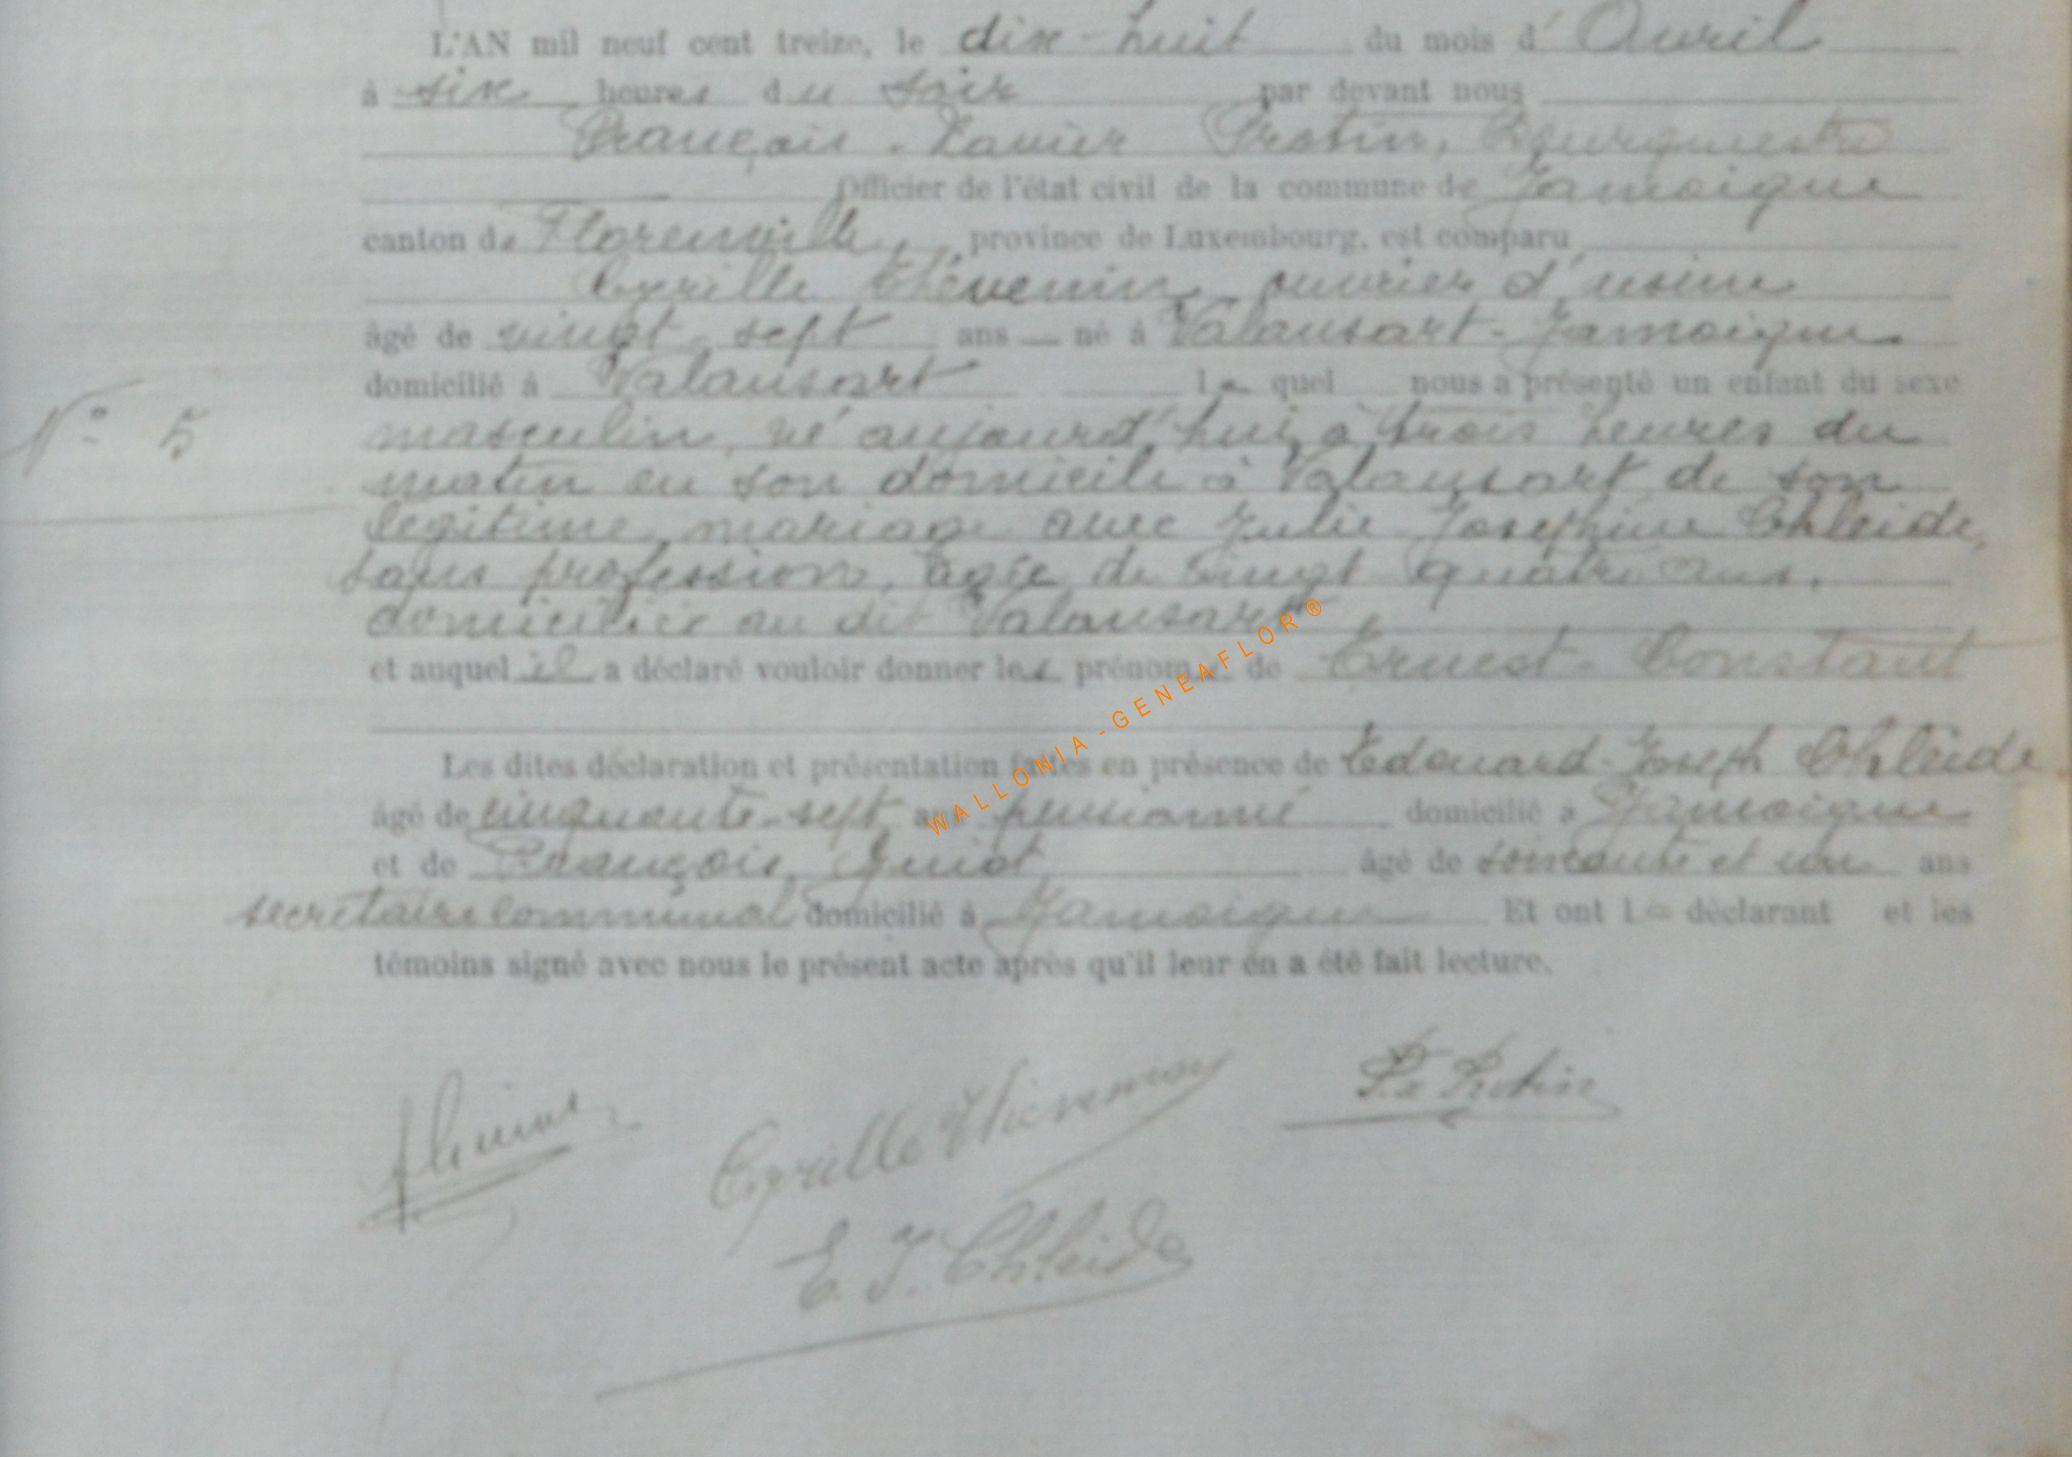 L'AN mil neuf cent treize, le dix-huit du mois d'Avril
à six heures du soir par devant nous
François-Xavier Protin, Bourgmestre
Officier de l'état civil de la commune de Jamoigne
canton de Florenville, province de Luxembourg, est comparu
Cyrille Thévenin, ouvrier d'usine
âgé de vingt-sept ans né à Valansart-Jamoigne
domicilié à Valansart le quel nous a présenté un enfant du sexe
N° 5
masculin, né aujourd'hui à trois heures du
matin en son domicile à Valansart de son
légitime mariage avec Julie Joséphine Chleide,
sans profession, âgée de vingt quatre ans,
domiciliée au dit Valansart
et auquel il a déclaré vouloir donner les prénoms de Ernest-Constant
Les dites déclaration et présentation faites en présence de Edouard-Joseph Chleide
âgé de cinquante-sept ans pensionné domicilié à Jamoigne
et de François Guiot âgé de soixante et un ans
secrétaire communal domicilié à Jamoigne Et ont le déclarant et les
témoins signé avec nous le présent acte après qu'il leur en a été fait lecture.
Cyrille Thievenin
Fx Protin
E. J. Chleide
WALLONIA-GENEAFLOR®